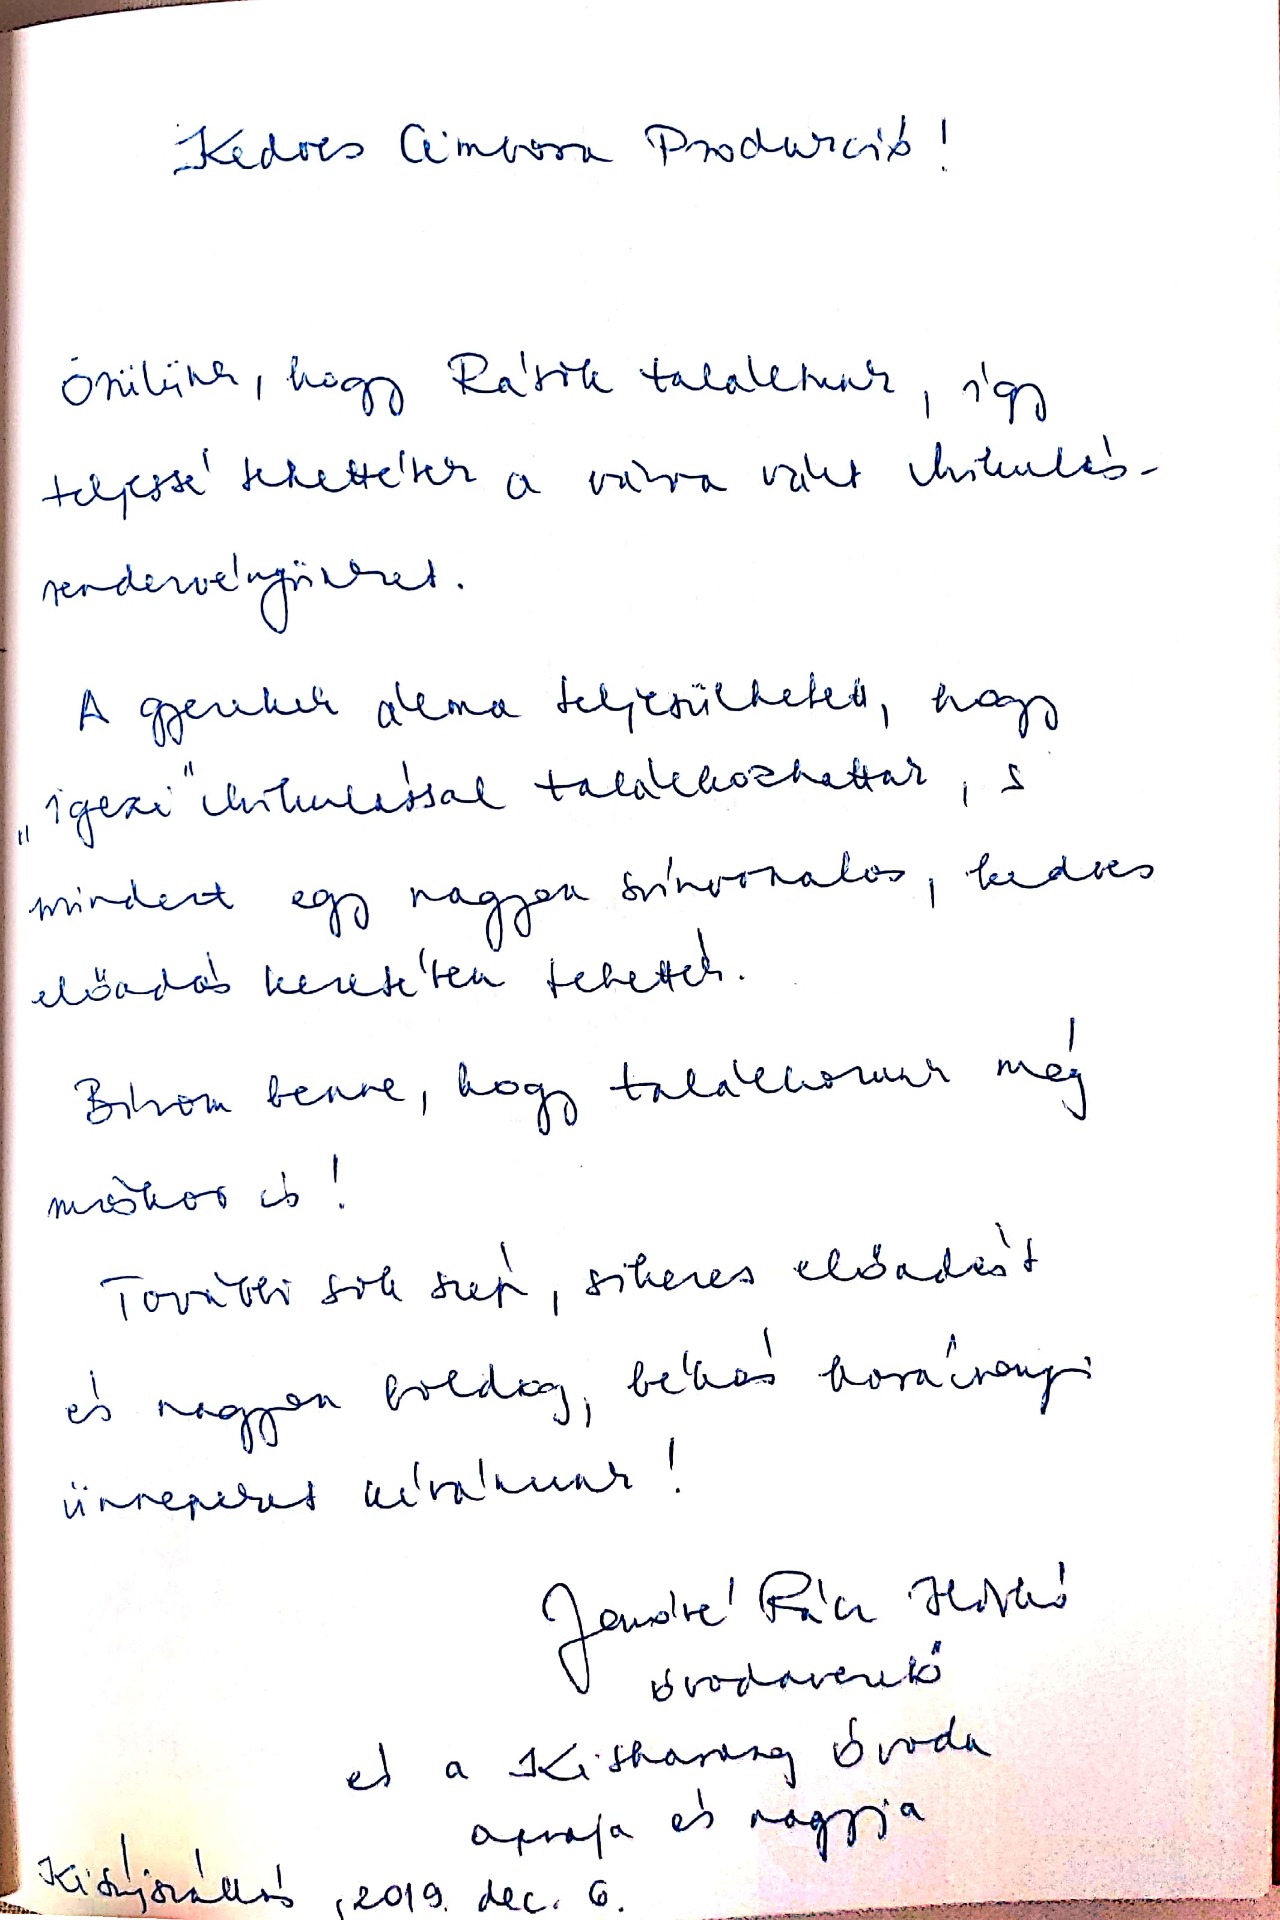 Kedves Cimbora Produkció!
Örülünk, hogy Rátok találtunk, így
teljessé tehettétek a várva várt Mikulás-
rendezvényünket.
A gyerekek álma teljesülhetett, hogy
„igazi" Mikulással találkozhattak, s
mindezt egy nagyon színvonalas, kedves
előadás keretében tehették.
Bízom benne, hogy találkozunk még
máskor is!
További sok szép, sikeres előadást
és nagyon boldog, békés karácsonyi
ünnepeket kívánunk!
Rácz Ildikó
óvodavezető
és a Kisharang Óvoda
apraja és nagyja
Kisújszállás, 2019. dec. 6.